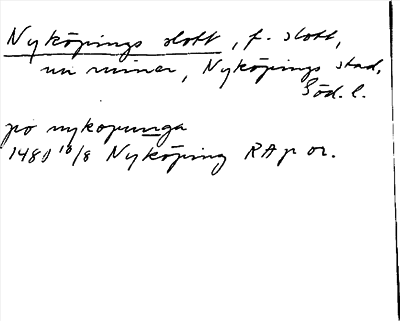 Nyköpings slott, f. slott,
nu ruiner, Nyköpings stad,
Söd. l.
po nykopunga
1480 18/8 Nyköping RA p or.